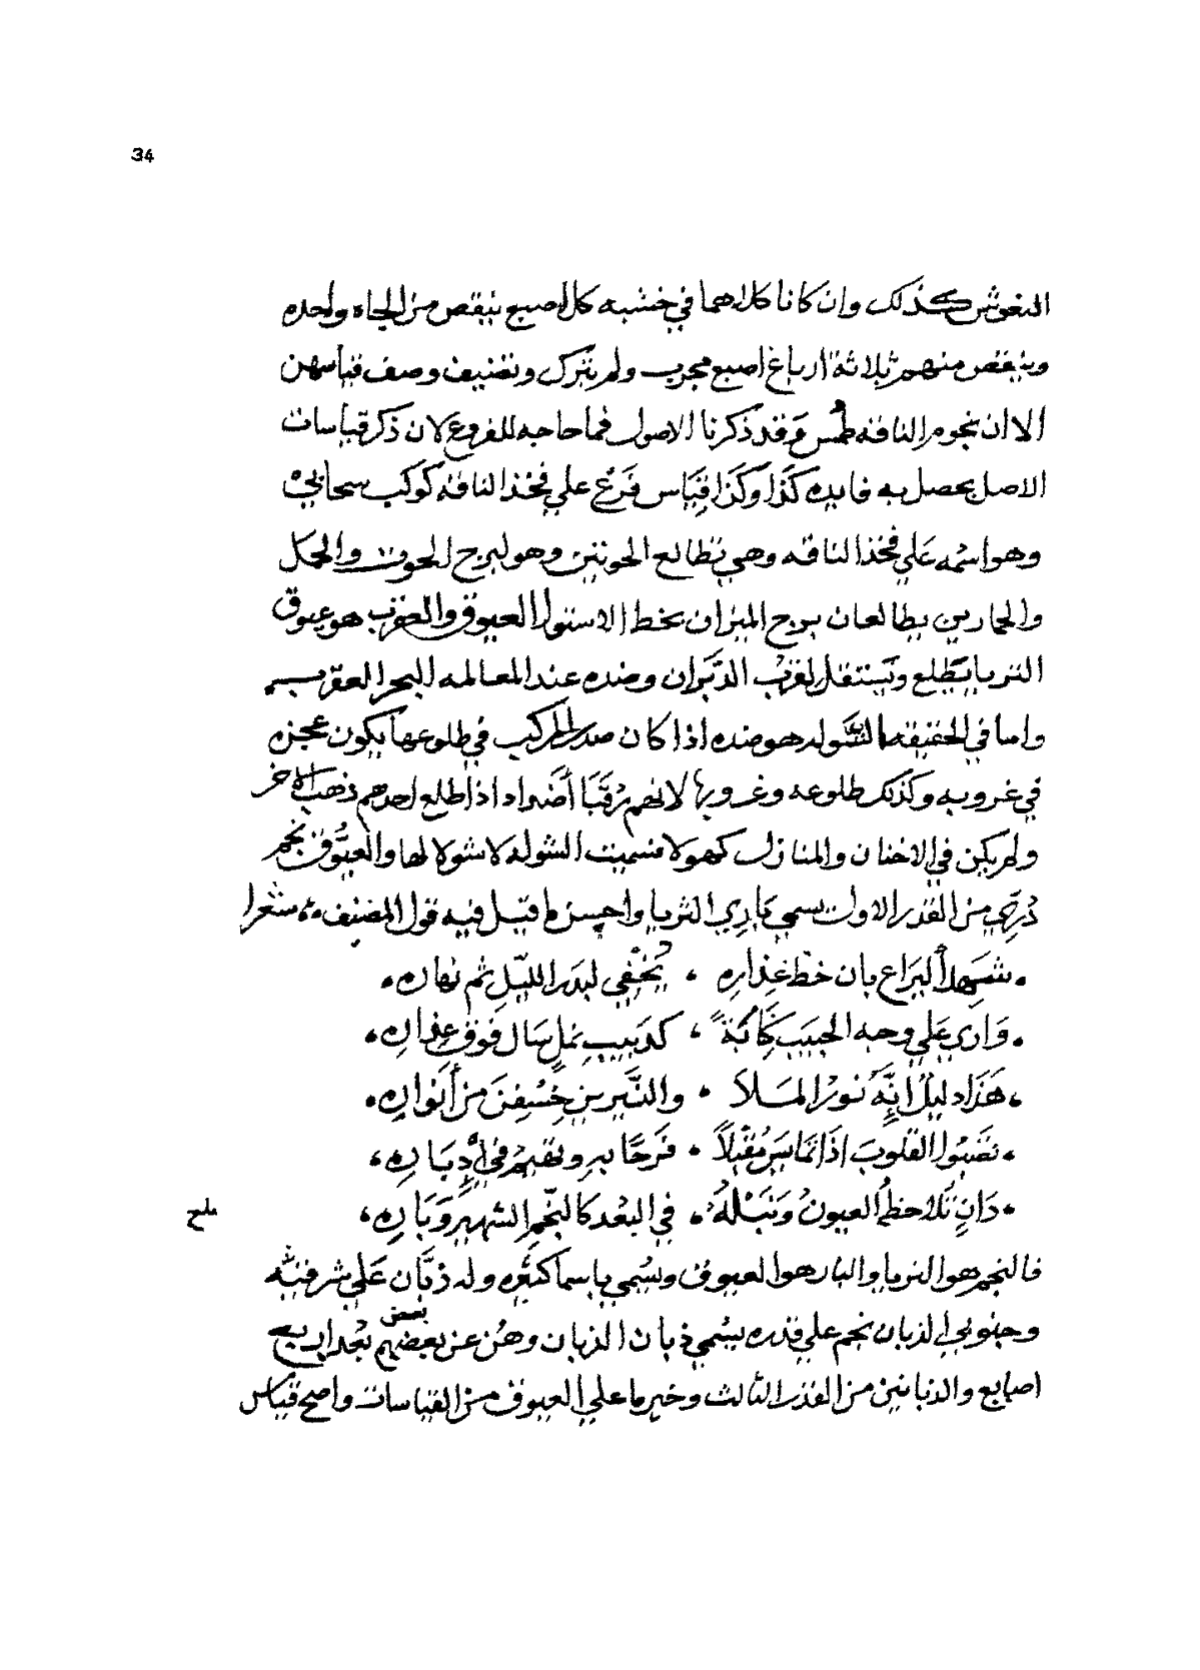 34
النعوش كذلك وان كانا كلاهما في خشبه كل اصبع ينقص من الجاه واحده
وينقص منهم ثلاثة ارباع اصبع مجرب ولم نترك ونصنيف وصف قياسهن
الا ان نجوم الناقه طمس وقد ذكرنا الاصول فما حاجه للفروع لان ذكر قياسات
الاصل يحصل به فايده كذا وكذا قياس فرع علي فخذ الناقه كوكب سحابي
وهو اسمه علي فخذ الناقه وهي تطالع الحوتين وهو لبرج الحوت والحمل
والحمارين يطالعان برج الميزان بخط الاستوا العيوق والعقرب هو عيوق
الثريا يطلع ويستقل لغرب الدبران وضده عند المعالمه البحر العقرب
واما في الحقيقه الشوله هو ضده اذا كان صدر المركب في طلوعها يكون عجزه
في غروبه وكذلك طلوعه وغروبها لانهم رقبا أضداد اذا طلع احدهم ذهب الآخر
ولم يكن في الاخنان والمنازل كهولا فسميت الشوله لا شولا لها والعيوق نجم
دري من القدر الاول يسمي بادي الثريا واحسن ما قيل فيه قول المصنف شعرا
شهد اليراع بان خط عذاره يخفي لبدر الليل ثم نهاره
وأري علي وجه الحبيب كآبة كدبيب نمل سال فوق عذاره
هذا دليل انه نور الملا والنيرين خسفن من أنواره
تصبوا القلوب اذا تماس مقبلا فرحا به وتقيم في إدباره
دان تلاحظه العيون ونبله في البعد كالنجم الشهير وباره
ملح
فالنجم هو الثريا والبار هو العيوق ويسمي باسما كثيره وله ذبان علي شرقيه
وجنوبي الذبان نجم علي قدره يسمي ذبان الذبان وهن عن بعضهم بعض بعد اربع
اصابع والذبانين من القدر الثالث وخير ما علي العيوق من القياسات واصح قياس